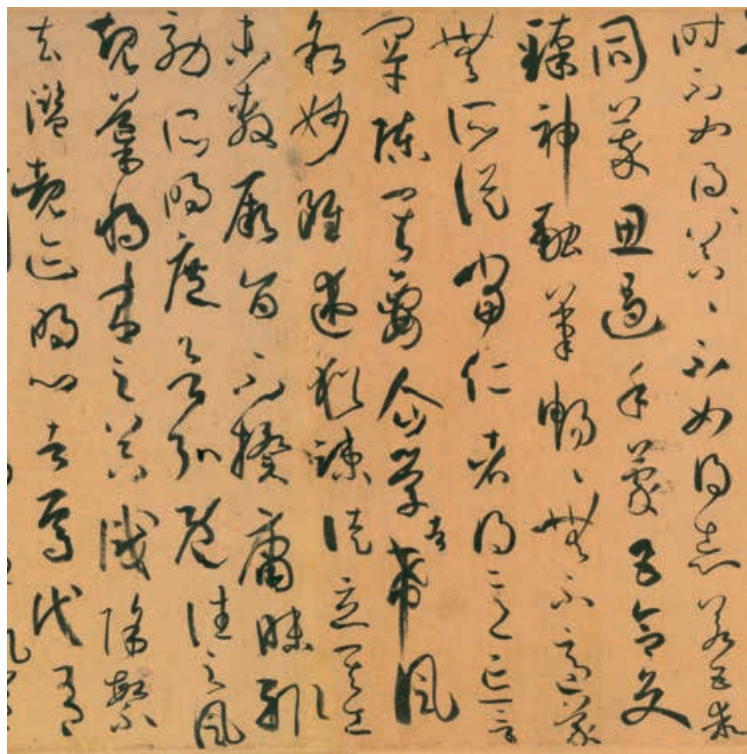 時不如得器〻不如得志若五乖
同萃思遏手蒙五合交
臻神融筆暢〻無不適蒙
無所從當仁者得意忘言
罕陳其要企學者希風
敘妙雖述猶疎徒立其工
未敷厥旨不揆庸昧輒
效所明庶欲弘既往之風
規導將來之器識除繁
去濫覩迹明心者焉代有